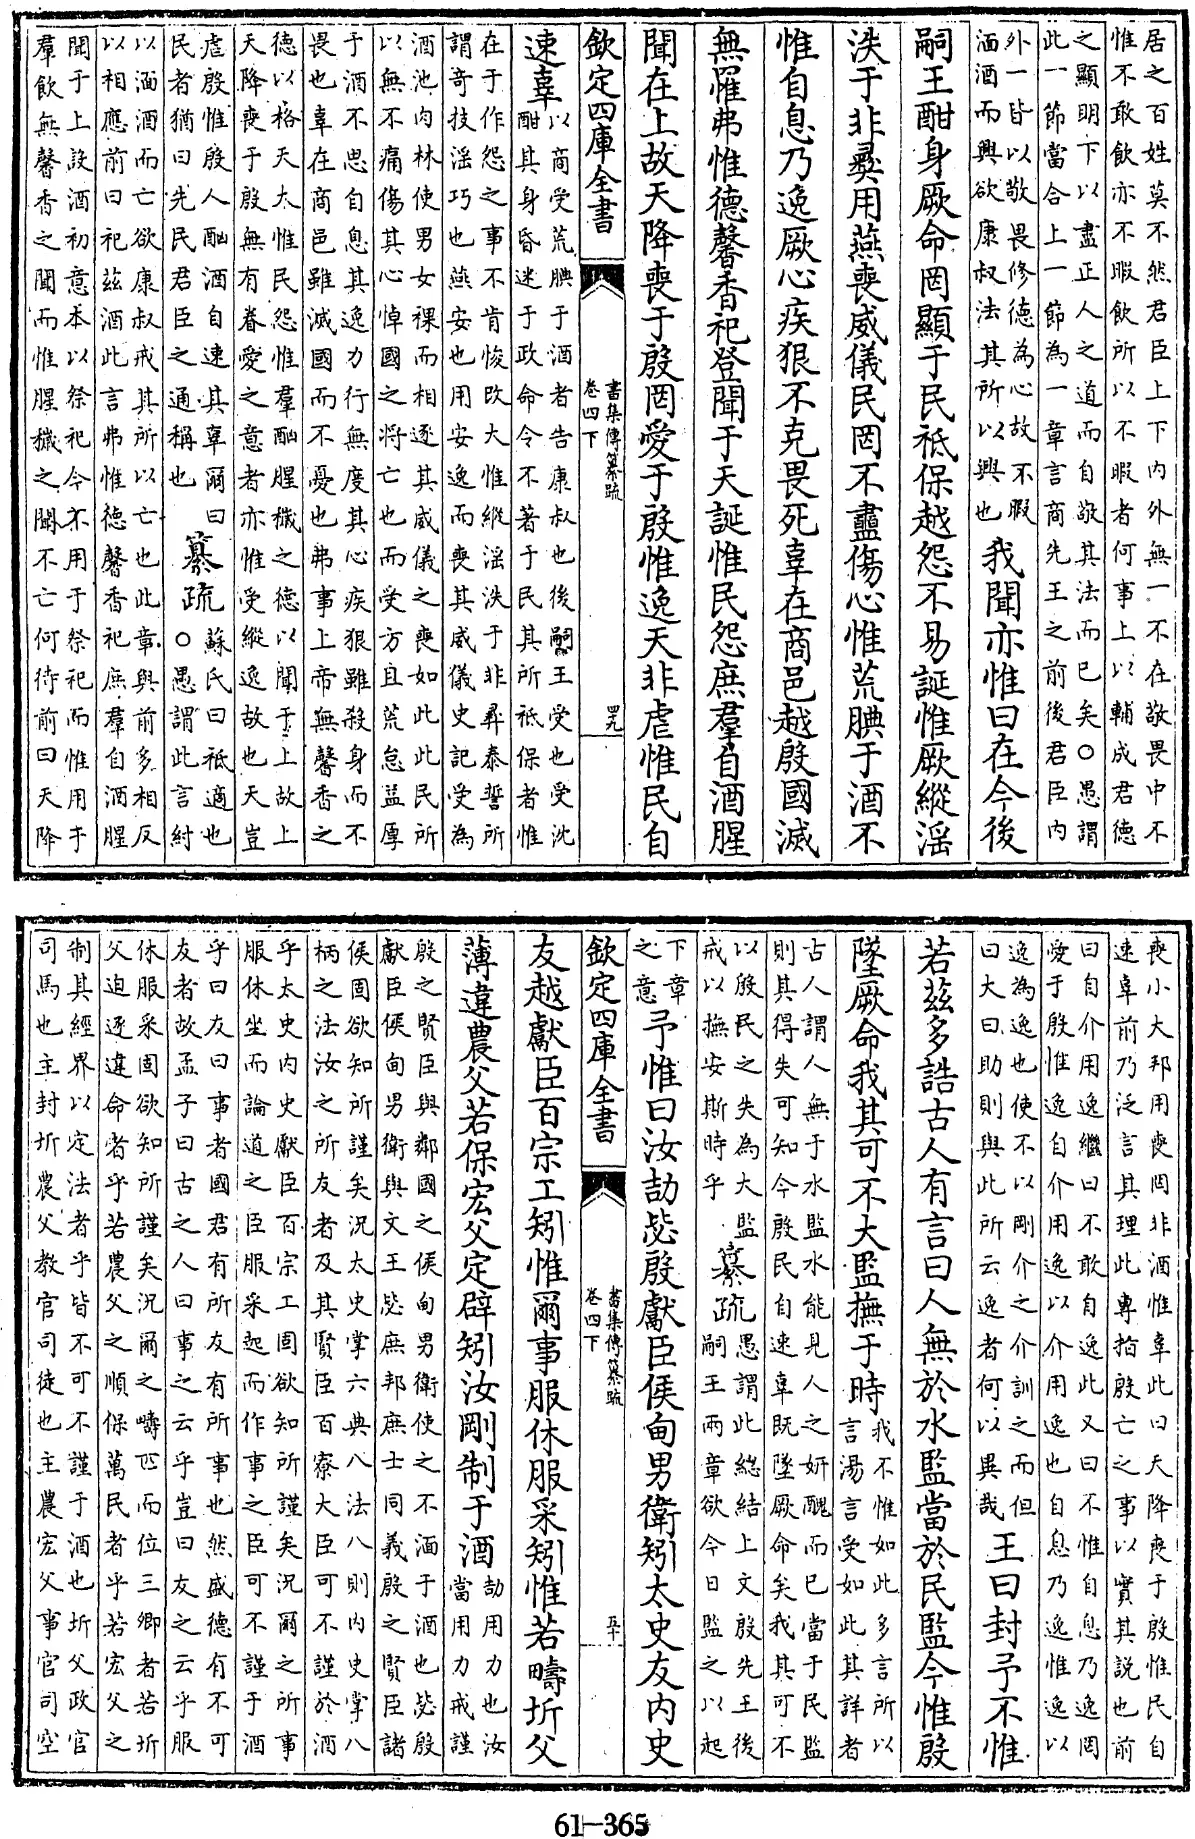 居之百姓莫不然君臣上下內外無一不在敬畏中不
惟不敢飲亦不暇飲所以不暇者何事上以輔成君德
之顯明下以盡正人之道而自敬其法而已矣○愚謂
此一節當合上一節為一章言商先王之前後君臣內
外一皆以敬畏修德為心故不暇
湎酒而興欲康叔法其所以興也
我聞亦惟曰在今後
嗣王酣身厥命罔顯于民祗保越怨不易誕惟厥縱淫
泆于非彛用燕喪威儀民罔不衋傷心惟荒腆于酒不
惟自息乃逸厥心疾狠不克畏死辜在商邑越殷國滅
無罹弗惟德馨香祀登聞于天誕惟民怨庶羣自酒腥
聞在上故天降喪于殷罔愛于殷惟逸天非虐惟民自
欽定四庫全書
書集傳纂疏
卷四下
四九
速辜
以商受荒腆于酒者告康叔也後嗣王受也受沈
酣其身昏迷于政命令不著于民其所祗保者惟
在于作怨之事不肯悛改大惟縱淫泆于非彝泰誓所
謂奇技淫巧也燕安也用安逸而喪其威儀史記受為
酒池肉林使男女裸而相逐其威儀之喪如此此民所
以無不痛傷其心悼國之將亡也而受方且荒怠益厚
于酒不思自息其逸力行無度其心疾狠雖殺身而不
畏也辜在商邑雖滅國而不憂也弗事上帝無馨香之
德以格天大惟民怨惟羣酗腥穢之德以聞于上故上
天降喪于殷無有眷愛之意者亦惟受縱逸故也天豈
虐殷惟殷人酗酒自速其辜爾曰
民者猶曰先民君臣之通稱也
纂疏
蘇氏曰祗適也
○愚謂此言紂
以湎酒而亡欲康叔戒其所以亡也此章與前多相反
以相應前曰祀茲酒此言弗惟德馨香祀庶羣自酒腥
聞于上設酒初意本以祭祀今不用于祭祀而惟用于
羣飲無馨香之聞而惟腥穢之聞不亡何待前曰天降
喪小大邦用喪罔非酒惟辜此曰天降喪于殷惟民自
速辜前乃泛言其理此專指殷亡之事以實其說也前
曰自介用逸繼曰不敢自逸此又曰不惟自息乃逸罔
愛于殷惟逸自介用逸以介用逸也自息乃逸惟逸以
逸為逸也使不以剛介之介訓之而但
曰大曰助則與此所云逸者何以異哉
王曰封予不惟
若茲多誥古人有言曰人無於水監當於民監今惟殷
墜厥命我其可不大監撫于時
我不惟如此多言所以
言湯言受如此其詳者
古人謂人無于水監水能見人之妍醜而已當于民監
則其得失可知今殷民自速辜既墜厥命矣我其可不
以殷民之失為大監
戒以撫安斯時乎
纂疏
愚謂此總結上文殷先王後
嗣王兩章欲今日監之以起
下章
之意
予惟曰汝劼毖殷獻臣侯甸男衛矧太史友內史
欽定四庫全書
書集傳纂疏
卷四下
五十
友越獻臣百宗工矧惟爾事服休服采矧惟若疇圻父
薄違農父若保宏父定辟矧汝剛制于酒
劼用力也汝
當用力戒謹
殷之賢臣與鄰國之侯甸男衛使之不湎于酒也毖殷
獻臣侯甸男衛與文王毖庶邦庶士同義殷之賢臣諸
侯固欲知所謹矣況太史掌六典八法八則內史掌八
柄之法汝之所友者及其賢臣百寮大臣可不謹於酒
乎太史內史獻臣百宗工固欲知所謹矣況爾之所事
服休坐而論道之臣服采起而作事之臣可不謹于酒
乎曰友曰事者國君有所友有所事也然盛德有不可
友者故孟子曰古之人曰事之云乎豈曰友之云乎服
休服采固欲知所謹矣況爾之疇匹而位三卿者若圻
父迫逐違命者乎若農父之順保萬民者乎若宏父之
制其經界以定法者乎皆不可不謹于酒也圻父政官
司馬也主封圻農父教官司徒也主農宏父事官司空
61-365